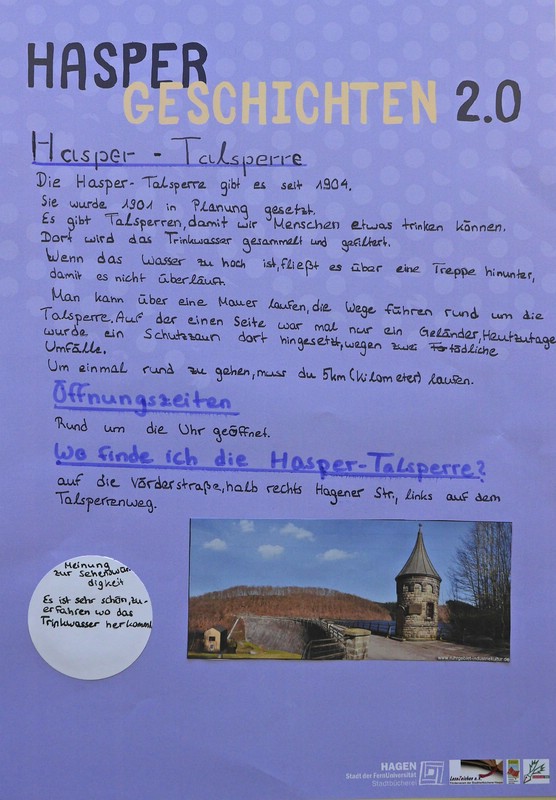 HASPER
GESCHICHTEN 2.0
Hasper - Talsperre
Die Hasper-Talsperre gibt es seit 1904.
Sie wurde 1901 in Planung gesetzt.
Es gibt Talsperren, damit wir Menschen etwas trinken können.
Dort wird das Trinkwasser gesammelt und gefiltert.
Wenn das Wasser zu hoch ist, fließt es über eine Treppe hinunter,
damit es nicht überläuft.
Man kann über eine Mauer laufen, die Wege führen rund um die
Talsperre. Auf der einen Seite war mal nur ein Geländer, Heutzutage
wurde ein Schutzzaun dort hingesetzt, wegen zwei tödliche
Umfälle.
Um einmal rund zu gehen, muss du 5km (Kilometer) laufen.
Öffnungszeiten
Rund um die Uhr geöffnet.
Wo finde ich die Hasper-Talsperre?
auf die Vörderstraße, halb rechts Hagener Str., links auf dem
Talsperrenweg.
Meinung
zur Sehenswür-
digkeit
Es ist sehr schön, zu-
erfahren wo das
Trinkwasser herkommt
HAGEN
Stadt der FernUniversität
Stadtbücherei
LeseZeichen e.V.